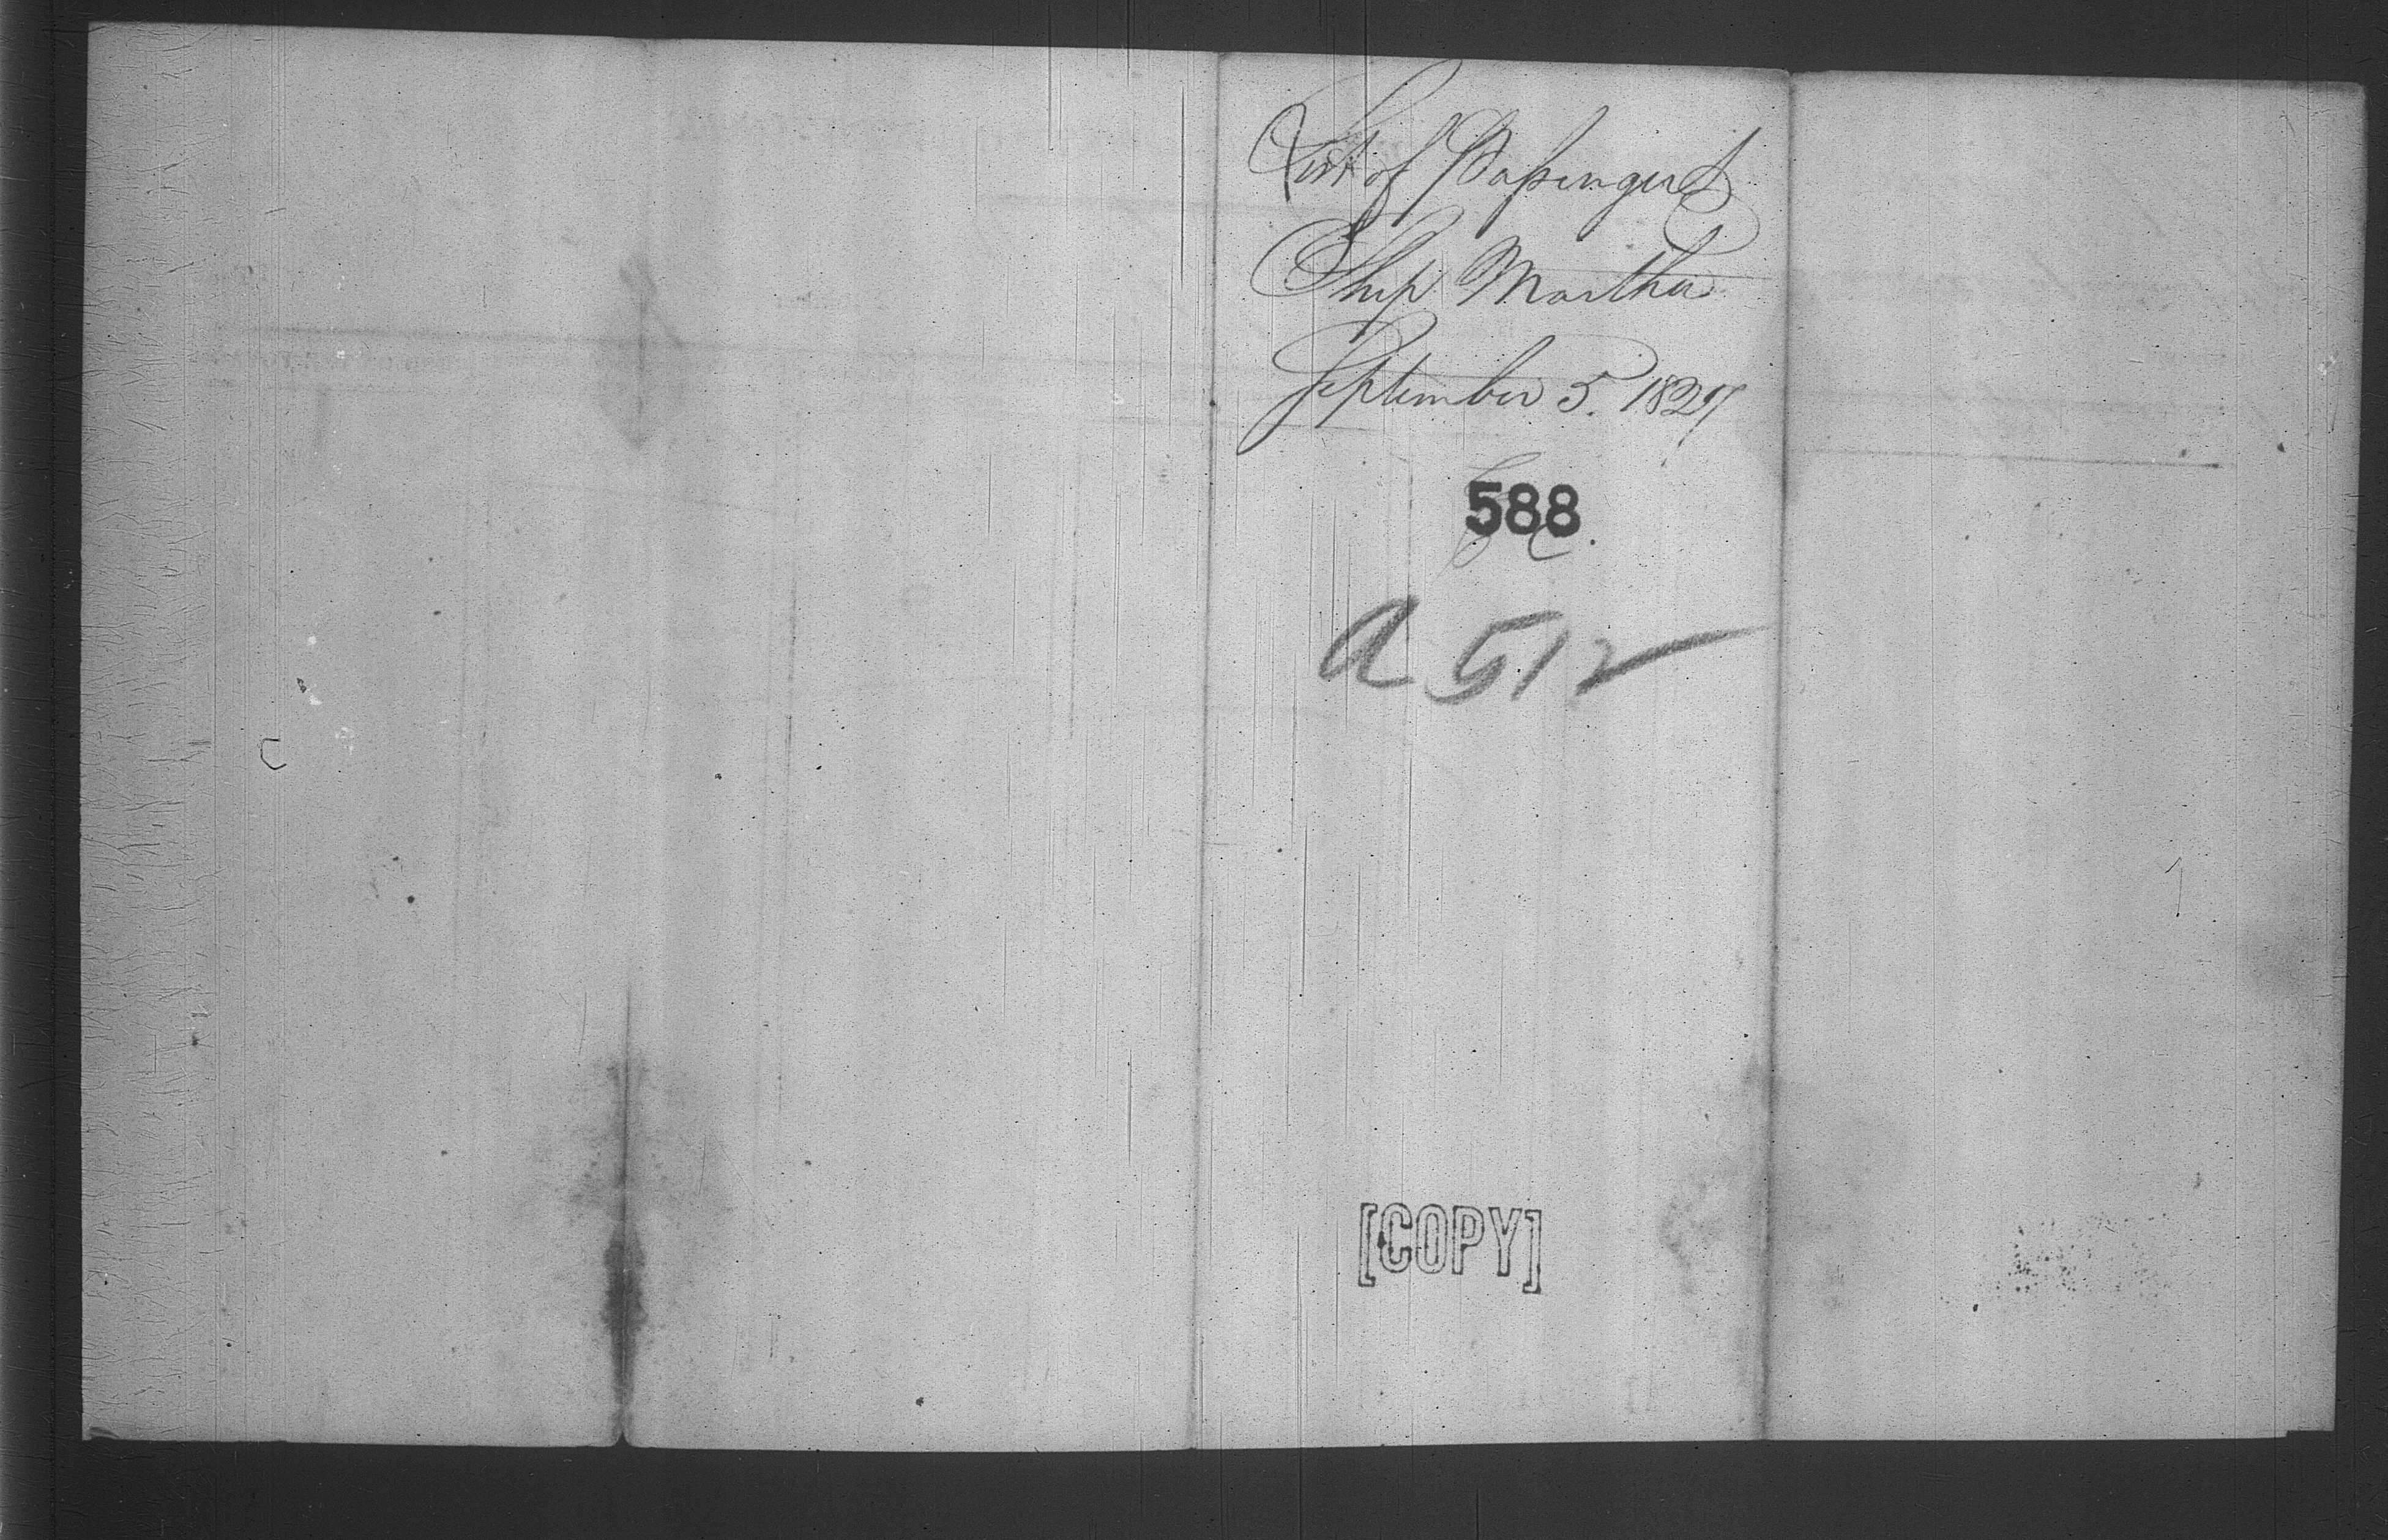 List of Passengers
Ship Martha
September 5. 1827
588
A 512
[COPY]